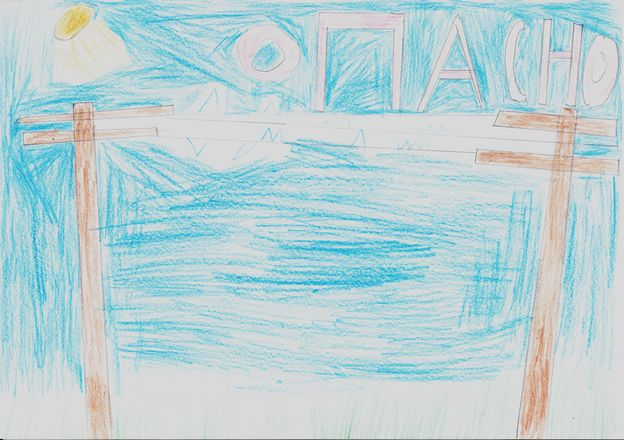 ОПАСНО